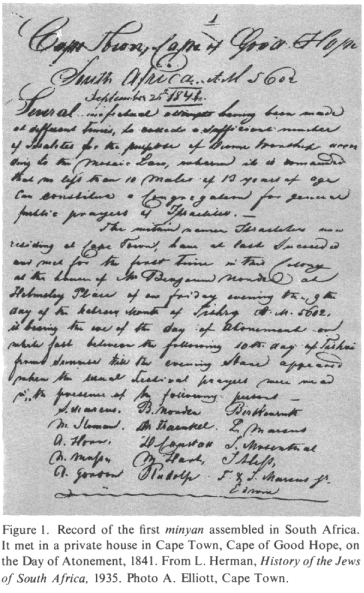 1
Cape Town, Cape of Good Hope
South Africa. A.M. 5602
September 25th 1841.
Several ineffectual attempts having been made
at different times, to collect a sufficient number
of Israelites for the purpose of Divine Worship accor
ding to the Mosaic Law, wherein it is commanded
that no less than 10 Males of 13 years of age
can constitute a Congregation for general
public prayers of Israelites. —
The within names Israelites now
residing at Cape Town, have at last succeeded
and met for the first time in this Colony
at the house of Mr Benjamin Norden at
Helmsley Place on friday evening the 9th
day of the Hebrew Month of Tishry A.M. 5602.
is being the eve of the day of Atonement on
which fast between the following 10th day of Tishri
from Summer till the evening Stars appeared
when the usual festival prayers were read
in the presence of the following persons —
S. Marcus B. Norden
M. Sloman E. Marcus
A. Horn S. Mosenthal
S. Rudolph
Figure 1. Record of the first minyan assembled in South Africa.
It met in a private house in Cape Town, Cape of Good Hope, on
the Day of Atonement, 1841. From L. Herman, History of the Jews
of South Africa, 1935. Photo A. Elliott, Cape Town.